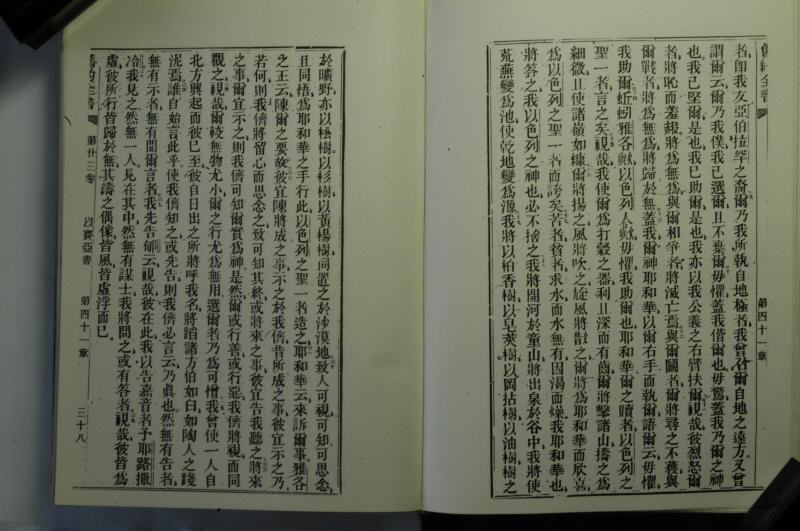 舊約全書
第四十一章
者卽我友亞伯拉罕之裔爾乃我所執自地極者我曾召爾自地之遠方又曾
謂爾云爾乃我僕我已選爾且不棄爾毋懼蓋我偕爾也毋驚蓋我乃爾之神
也我已堅爾是也我已助爾是也我亦以我公義之右臂扶爾視哉彼烈怒爾
者將恥而羞赧將為無為與爾相爭者將滅亡焉與爾鬭者爾將尋之不獲與
爾戰者將為無為將歸於無蓋我爾神耶和華以爾右手而執爾語爾云毋懼
我助爾蚯蚓雅各歟以色列人歟毋懼我助爾也耶和華爾之贖者以色列之
聖一者言之矣視哉我使爾為打穀之器利且深而有齒爾將擊諸山擣之為
細微且使諸嶺如糠爾將揚之風將吹之旋風將散之爾將為耶和華而欣喜
為以色列之聖一者而誇矣若者貧者求水而水無有因渴而燥我耶和華也
將答之我以色列之神也必不捨之我將開河於童山將出泉於谷中我將使
荒蕪變為池使乾地變為源我將以柏香樹以皂莢樹以岡拈樹以油樹樹之
於曠野亦以松樹以杉樹以黃楊樹同置之於沙漠地致人可視可知可思念
且同悟為耶和華之手行此以色列之聖一者造之耶和華云來訴爾事雅各
之王云陳爾之要故彼宜陳將成之事示之於我儕昔所成之事彼宜示之乃
若何則我儕將留心而思念之致可知其終或將來之事彼宜告我聽之將來
之事爾宜示之則我儕可知爾實為神是然爾或行善或行惡我儕將視而同
觀之視哉爾較無物尤小爾之行尤為無用選爾者乃為可憎我曾使一人自
北方興起而彼已至彼自日出之所將呼我名將蹈諸方伯如臼如陶人之踐
泥焉誰自始言此乎使我儕知之或先告則我儕必言云乃眞也然無有告者
無有示者無有聞爾言者我先告郇云視哉彼在此我以告嘉音者予耶路撒
冷我見之然無一人見在其中然無有謀士我將問之或有答者視哉彼皆為
虛彼所行皆歸於無其鑄之偶像皆風皆虛浮而已
舊約全書
第廿三卷
以賽亞書
第四十一章
三十八